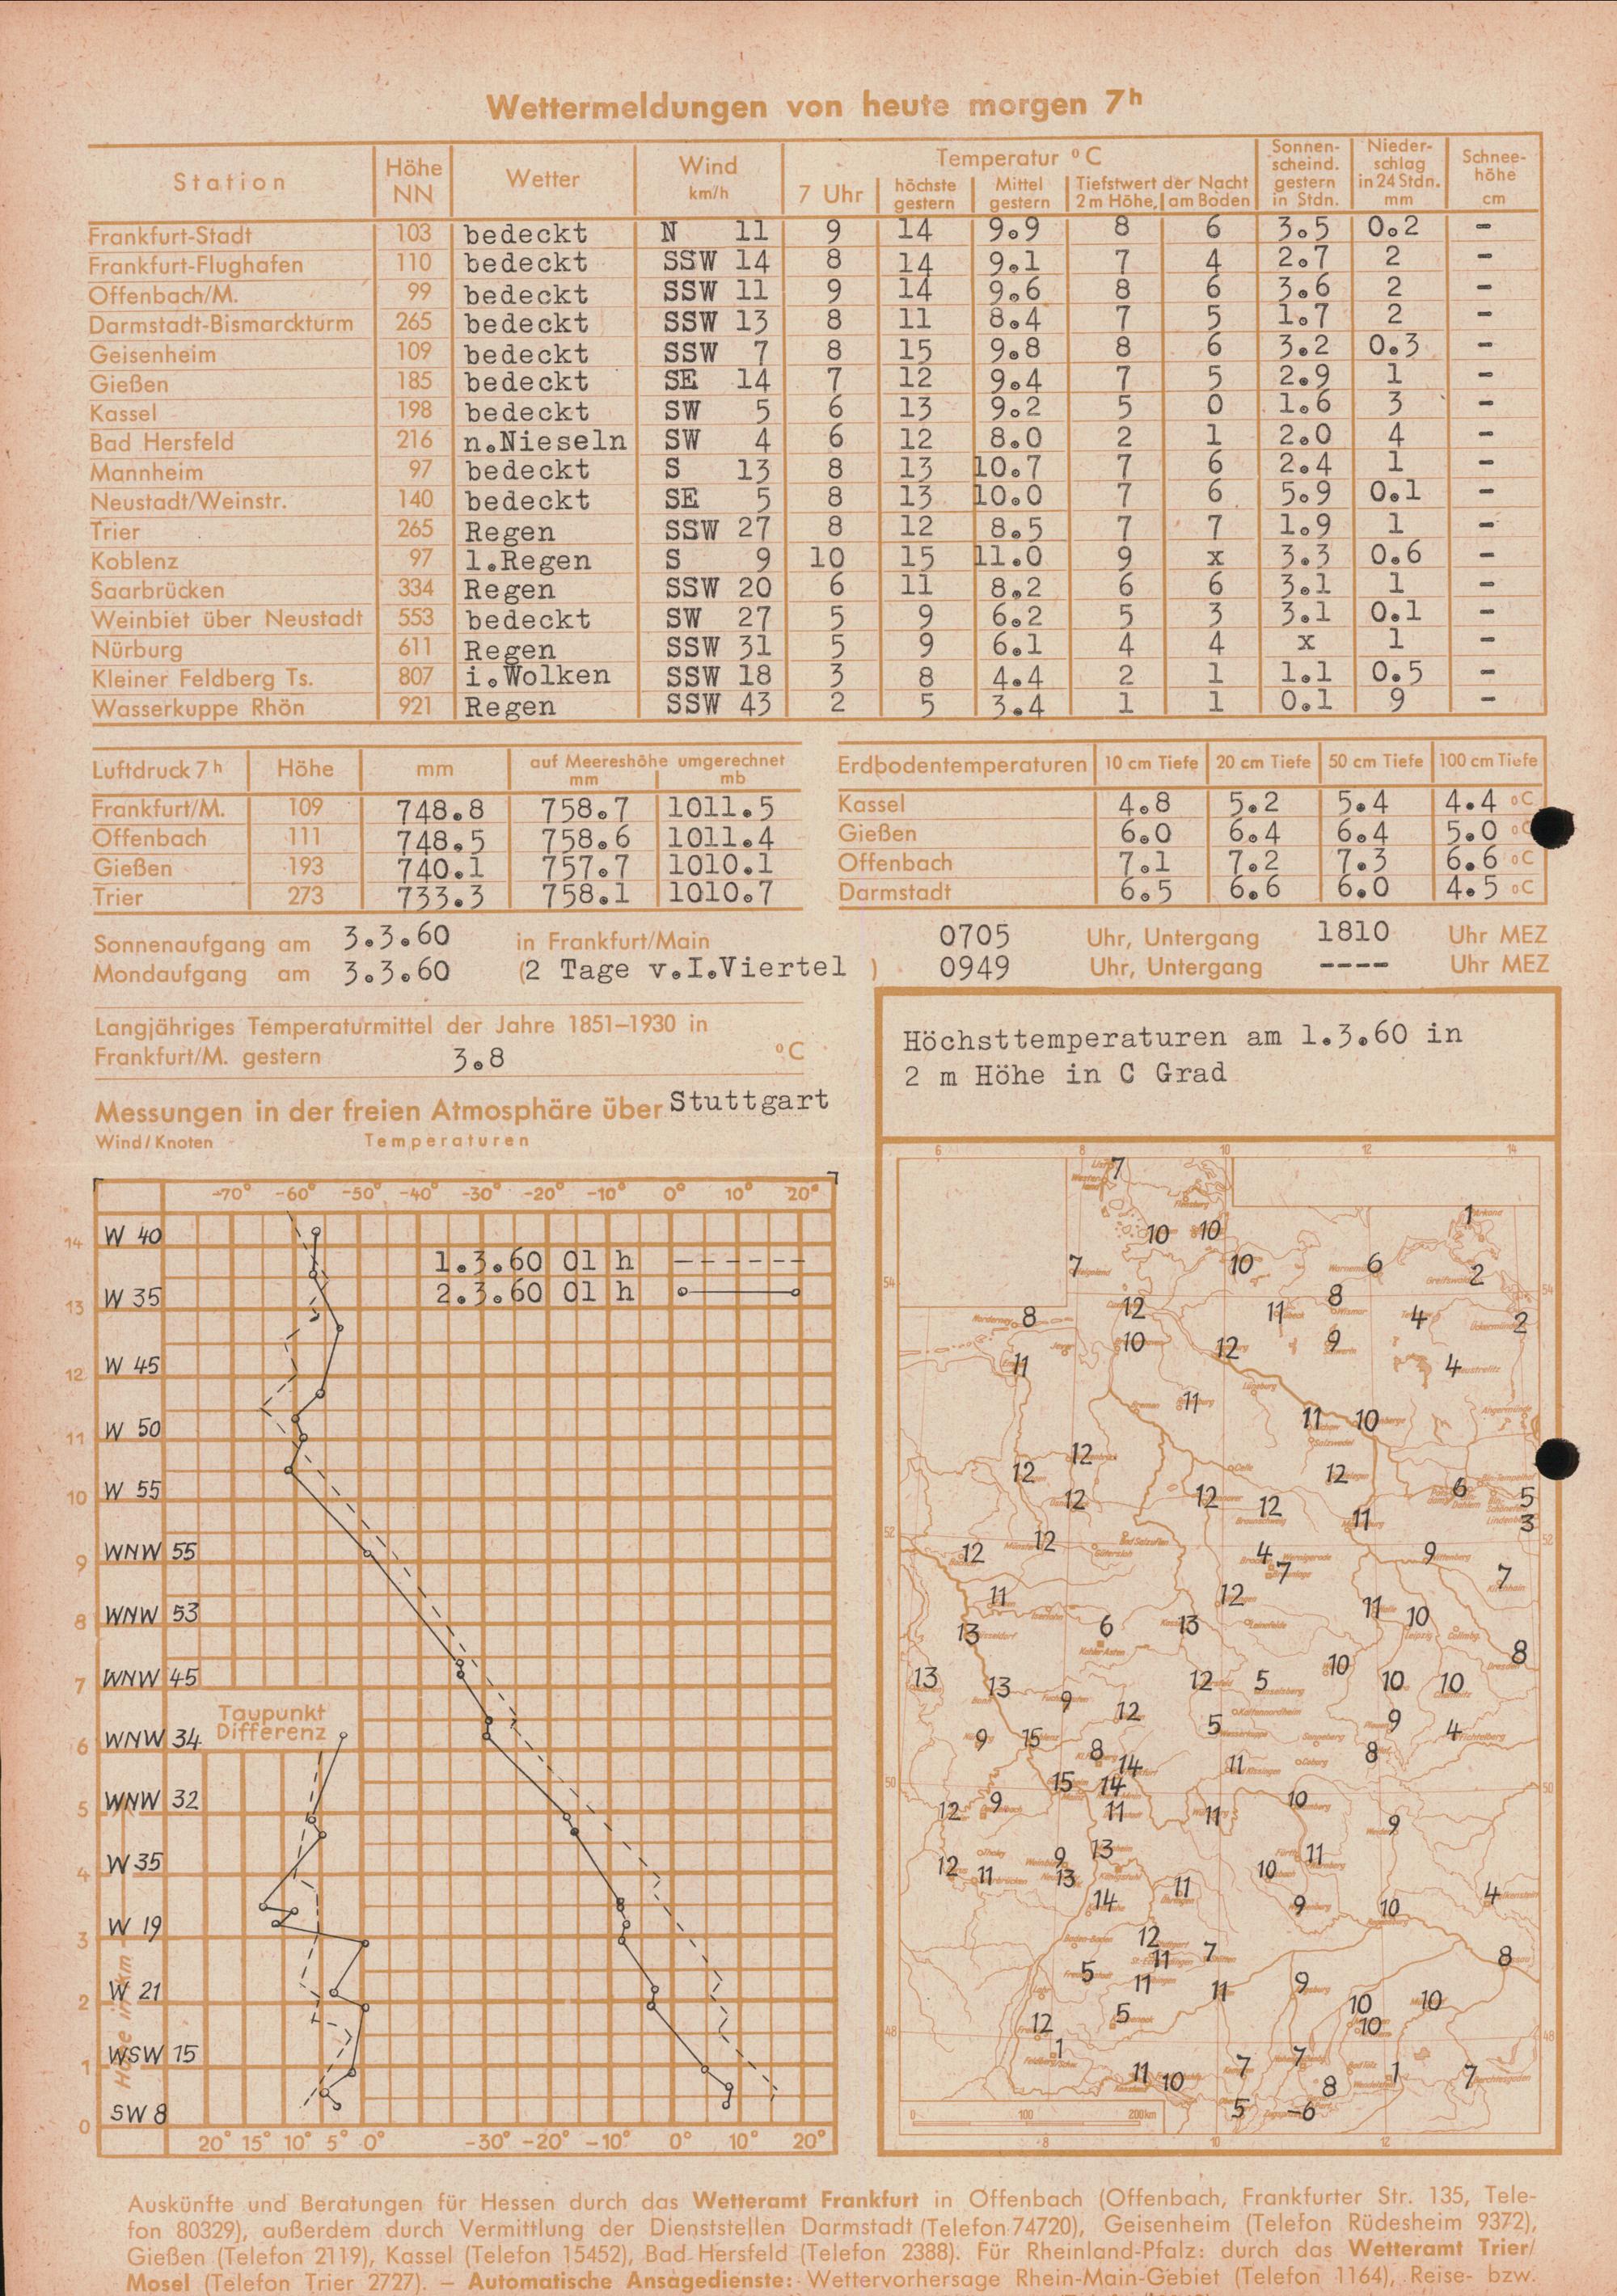 Wettermeldungen von heute morgen 7ʰ
Station Höhe NN Wetter Wind km/h Temperatur °C Sonnenscheind. gestern in Stdn. Niederschlag in 24 Stdn. mm Schneehöhe cm
7 Uhr höchste gestern Mittel gestern Tiefstwert der Nacht 2 m Höhe, am Boden
Frankfurt-Stadt 103 bedeckt N 11 9 14 9.9 8 6 3.5 0.2 -
Frankfurt-Flughafen 110 bedeckt SSW 14 8 14 9.1 7 4 2.7 2 -
Offenbach/M. 99 bedeckt SSW 11 9 14 9.6 8 6 3.6 2 -
Darmstadt-Bismarckturm 265 bedeckt SSW 13 8 11 8.4 7 5 1.7 2 -
Geisenheim 109 bedeckt SSW 7 8 15 9.8 8 6 3.2 0.3 -
Gießen 185 bedeckt SE 14 7 12 9.4 7 5 2.9 1 -
Kassel 198 bedeckt SW 5 6 13 9.2 5 0 1.6 3 -
Bad Hersfeld 216 n.Nieseln SW 4 6 12 8.0 2 1 2.0 4 -
Mannheim 97 bedeckt S 13 8 13 10.7 7 6 2.4 1 -
Neustadt/Weinstr. 140 bedeckt SE 5 8 13 10.0 7 6 5.9 0.1 -
Trier 265 Regen SSW 27 8 12 8.5 7 7 1.9 1 -
Koblenz 97 l.Regen S 9 10 15 11.0 9 x 3.3 0.6 -
Saarbrücken 334 Regen SSW 20 6 11 8.2 6 6 3.1 1 -
Weinbiet über Neustadt 553 bedeckt SW 27 5 9 6.2 5 3 3.1 0.1 -
Nürburg 611 Regen SSW 31 5 9 6.1 4 4 x 1 -
Kleiner Feldberg Ts. 807 i.Wolken SSW 18 3 8 4.4 2 1 1.1 0.5 -
Wasserkuppe Rhön 921 Regen SSW 43 2 5 3.4 1 1 0.1 9 -
Luftdruck 7ʰ Höhe mm auf Meereshöhe umgerechnet mm mb
Frankfurt/M. 109 748.8 758.7 1011.5
Offenbach 111 748.5 758.6 1011.4
Gießen 193 740.1 757.7 1010.1
Trier 273 733.3 758.1 1010.7
Erdbodentemperaturen 10 cm Tiefe 20 cm Tiefe 50 cm Tiefe 100 cm Tiefe
Kassel 4.8 5.2 5.4 4.4 °C
Gießen 6.0 6.4 6.4 5.0 °C
Offenbach 7.1 7.2 7.3 6.6 °C
Darmstadt 6.5 6.6 6.0 4.5 °C
Sonnenaufgang am 3.3.60 in Frankfurt/Main 0705 Uhr, Untergang 1810 Uhr MEZ
Mondaufgang am 3.3.60 (2 Tage v.I.Viertel ) 0949 Uhr, Untergang ---- Uhr MEZ
Langjähriges Temperaturmittel der Jahre 1851–1930 in
Frankfurt/M. gestern 3.8 °C
Messungen in der freien Atmosphäre über Stuttgart
Wind/Knoten Temperaturen
-70° -60° -50° -40° -30° -20° -10° 0° 10° 20°
14 W 40
1.3.60 01 h
2.3.60 01 h
13 W 35
12 W 45
11 W 50
10 W 55
9 WNW 55
8 WNW 53
7 WNW 45
Taupunkt
Differenz
6 WNW 34
5 WNW 32
4 W 35
3 W 19
2 W 21
1 WSW 15
0 SW 8
Höhe in km
20° 15° 10° 5° 0° -30° -20° -10° 0° 10° 20°
Höchsttemperaturen am 1.3.60 in
2 m Höhe in C Grad
6 8 10 12 14
7
1
10 10
7 10 6 2
54 54
8 12 11 8 4 2
10 12 9
11 4
11 11 10
12
12 12 6 5
12 12 12 11 3
52 52
12 12 4 7 9 7
11 12 11 10
13 6 13 8
13 13 9 12 5 10 10 10
12 5 9 4
9 15 8 14 11 8
50 50
15 14
12 9 11 11 10 9
13
12 11 9 13 10 11
14 11 9 10 4
12 11 7 8
5 11 11 9
12 5 10 10 10
48 48
1 11 10 7 7 1 7
5 8 -6
0 100 200km
8 10 12
Auskünfte und Beratungen für Hessen durch das Wetteramt Frankfurt in Offenbach (Offenbach, Frankfurter Str. 135, Tele-
fon 80329), außerdem durch Vermittlung der Dienststellen Darmstadt (Telefon 74720), Geisenheim (Telefon Rüdesheim 9372),
Gießen (Telefon 2119), Kassel (Telefon 15452), Bad Hersfeld (Telefon 2388). Für Rheinland-Pfalz: durch das Wetteramt Trier/
Mosel (Telefon Trier 2727). — Automatische Ansagedienste: Wettervorhersage Rhein-Main-Gebiet (Telefon 1164), Reise- bzw.